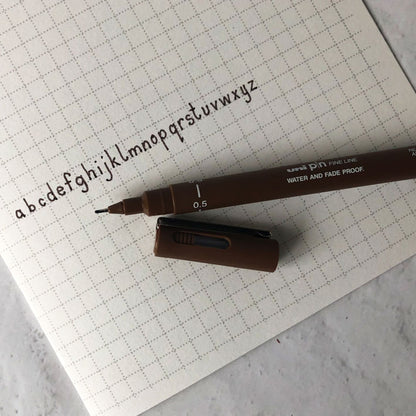 abcdefghijklmnopqrstuvwxyz
uni pin FINE LINE
WATER AND FADE PROOF.
0.5